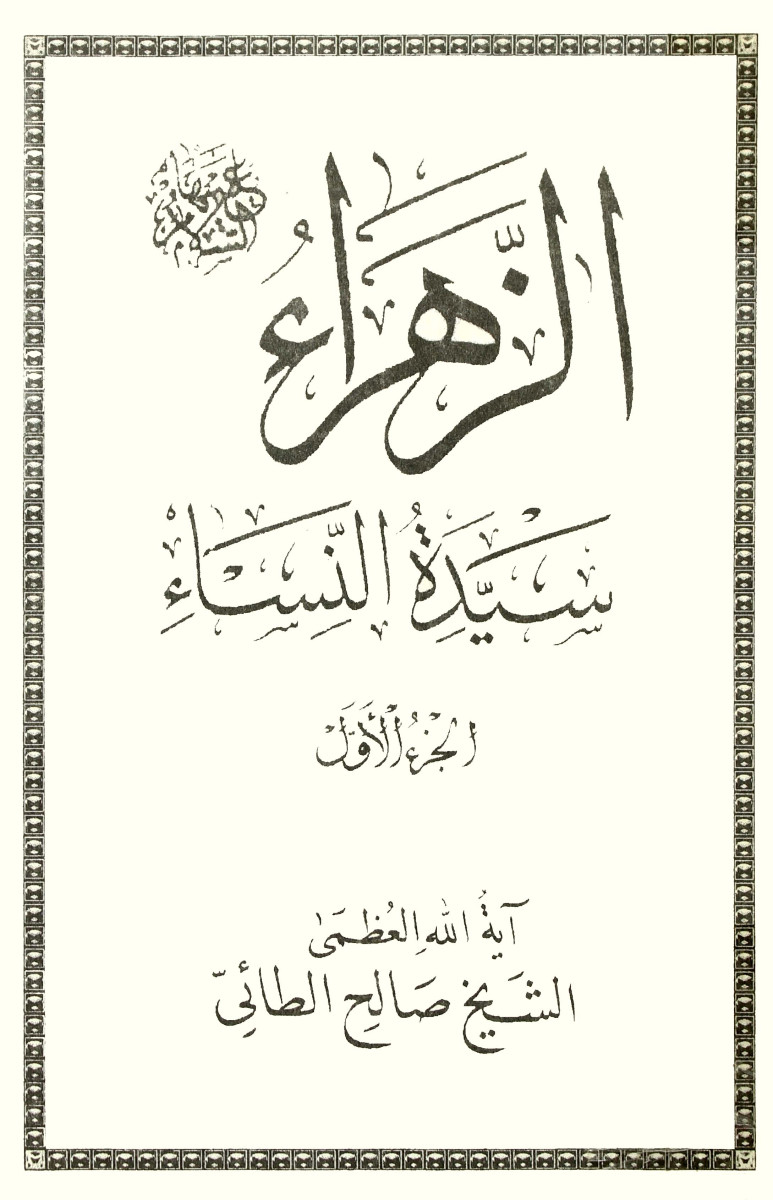 الزَّهْرَاءُ عليها السلام
سَيِّدَةُ النِّسَاءِ
الجُزءُ الأَوَّل
آيَةُ اللهِ العُظمَى
الشَّيخ صَالِحِ الطائِيّ